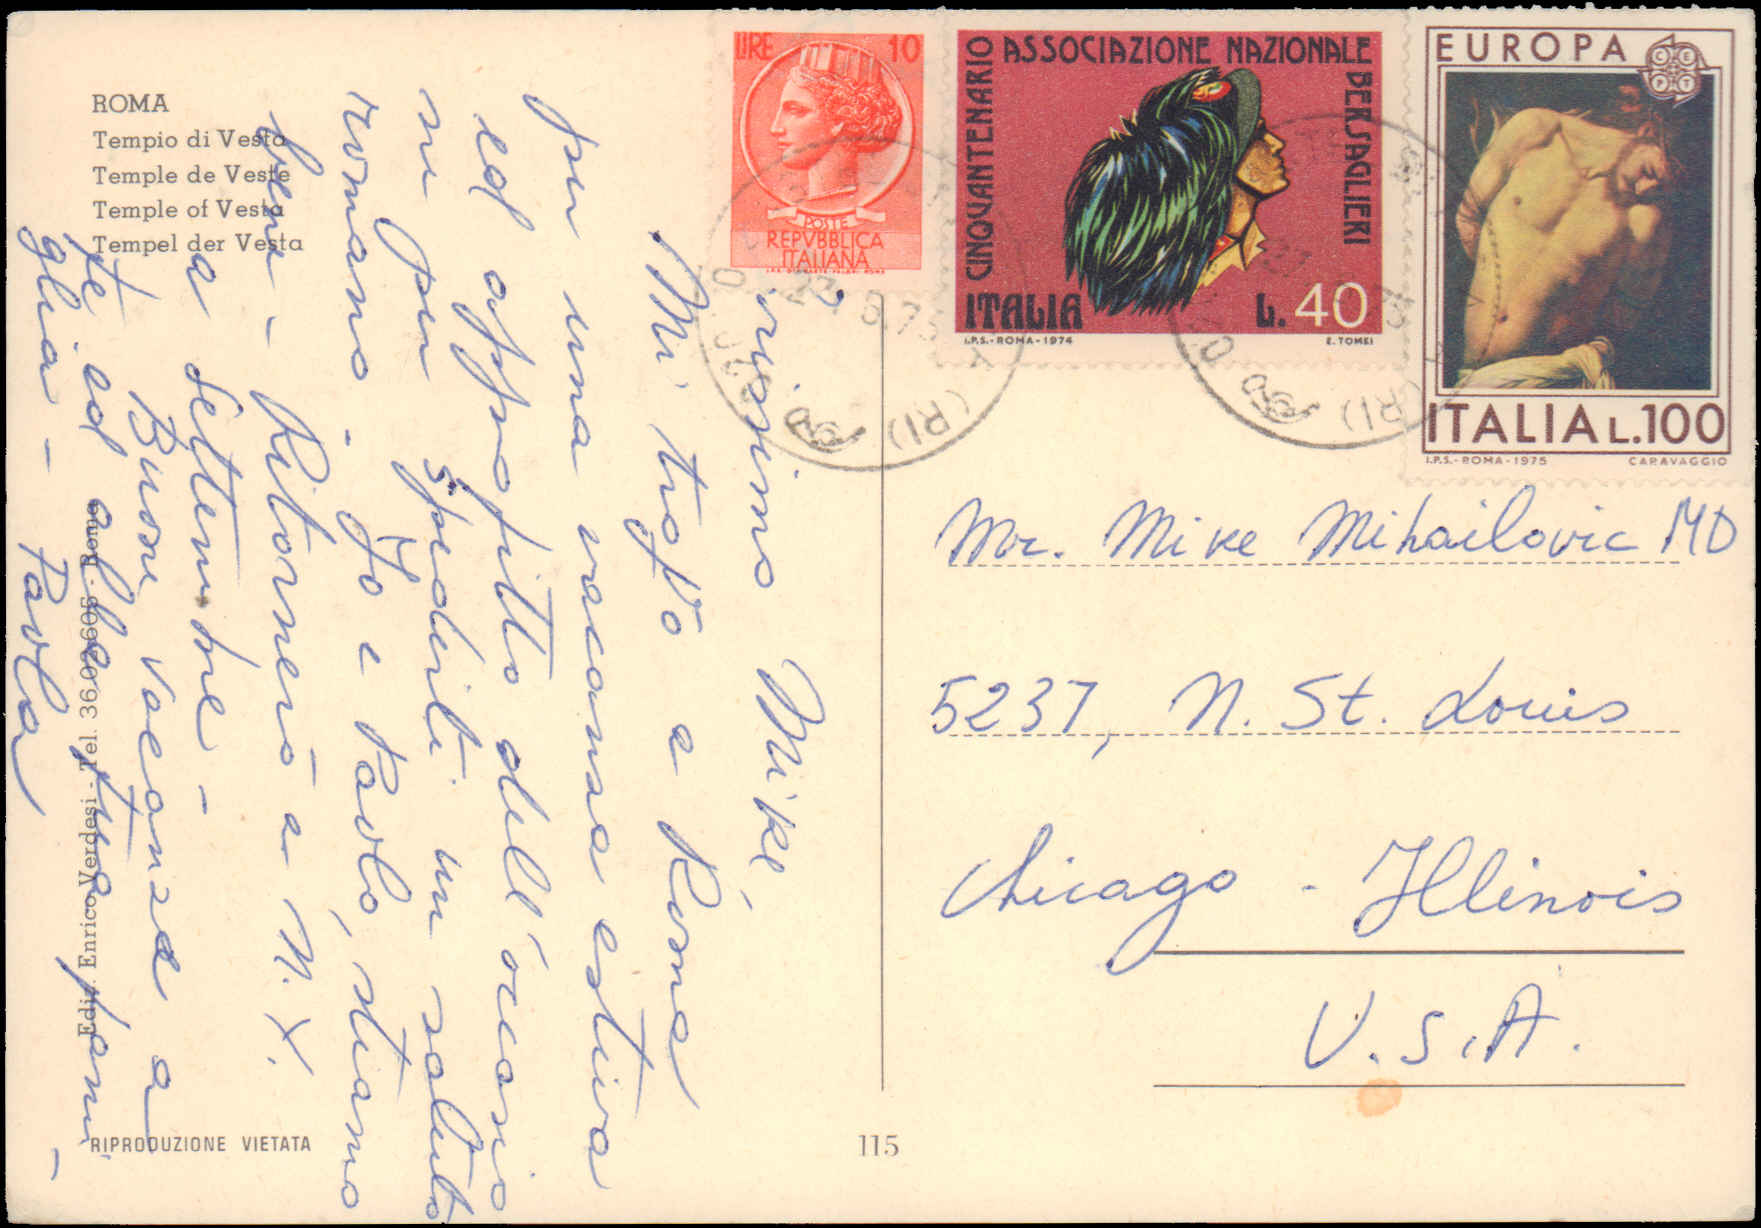 ROMA
Tempio di Vesta
Temple de Veste
Temple of Vesta
Tempel der Vesta
LIRE 10
POSTE
REPVBBLICA
ITALIANA
CINQUANTENARIO ASSOCIAZIONE NAZIONALE BERSAGLIERI
ITALIA L. 40
I.P.S. - ROMA - 1974 E. TOMEI
EUROPA CEPT
ITALIA L.100
I.P.S. - ROMA - 1975 CARAVAGGIO
(RI)
(RI)
Mike,
Mi trovo a Roma
per una vacanza estiva
ed approfitto dell'occasio
ne per spedirti un saluto
romano.
Io e Pavlo, stiamo
bene - Ritornerò a N.Y.
a settembre -
Buone vacanze a
te ed alla tua fami
glia - Pavla -
Mr. Mike Mihailovic MD
5237, N. St. Louis
Chicago - Illinois
U.S.A.
Ediz. Enrico Verdesi - Tel. 36.02.605 - Roma
RIPRODUZIONE VIETATA
115